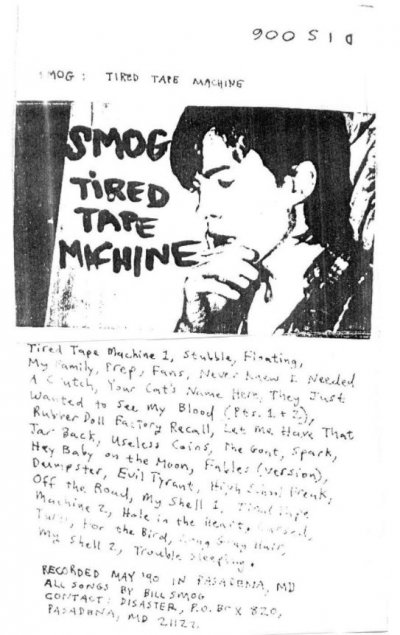 DIS 006
SMOG: TIRED TAPE MACHINE
SMOG
TiRED
TAPE
MACHINE
Tired Tape Machine 1, Stubble, Floating,
My Family, Prep, Fans, Never Knew I Needed
A Crutch, Your Cat's Name Here, They Just
Wanted to See My Blood (Pts. 1+2),
Rubber Doll Factory Recall, Let Me Have That
Jar Back, Useless Coins, The Gout, Spark,
Hey Baby on the Moon, Fables (version),
Dumpster, Evil Tyrant, High School Freak,
Off the Road, My Shell 1, Tired Tape
Machine 2, Hole in the Heart,
Turn, For the Bird, Long Gray Hair,
My Shell 2, Trouble Sleeping.
RECORDED MAY '90 IN PASADENA, MD
ALL SONGS BY BILL SMOG
CONTACT: DISASTER, P.O. BOX 820,
PASADENA, MD 21122.